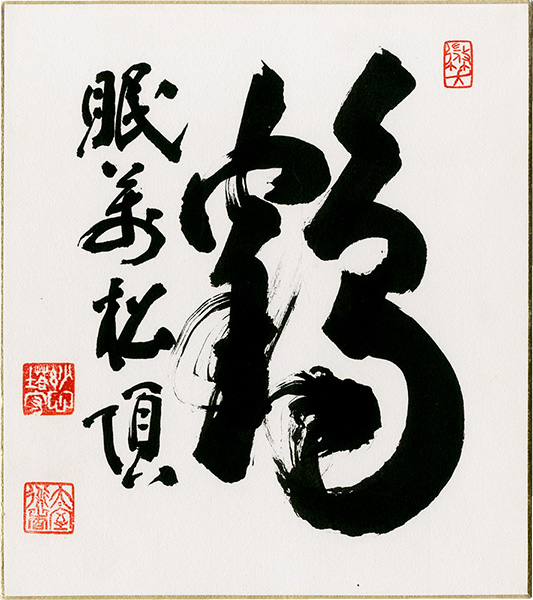 鶴
眠萬松頂